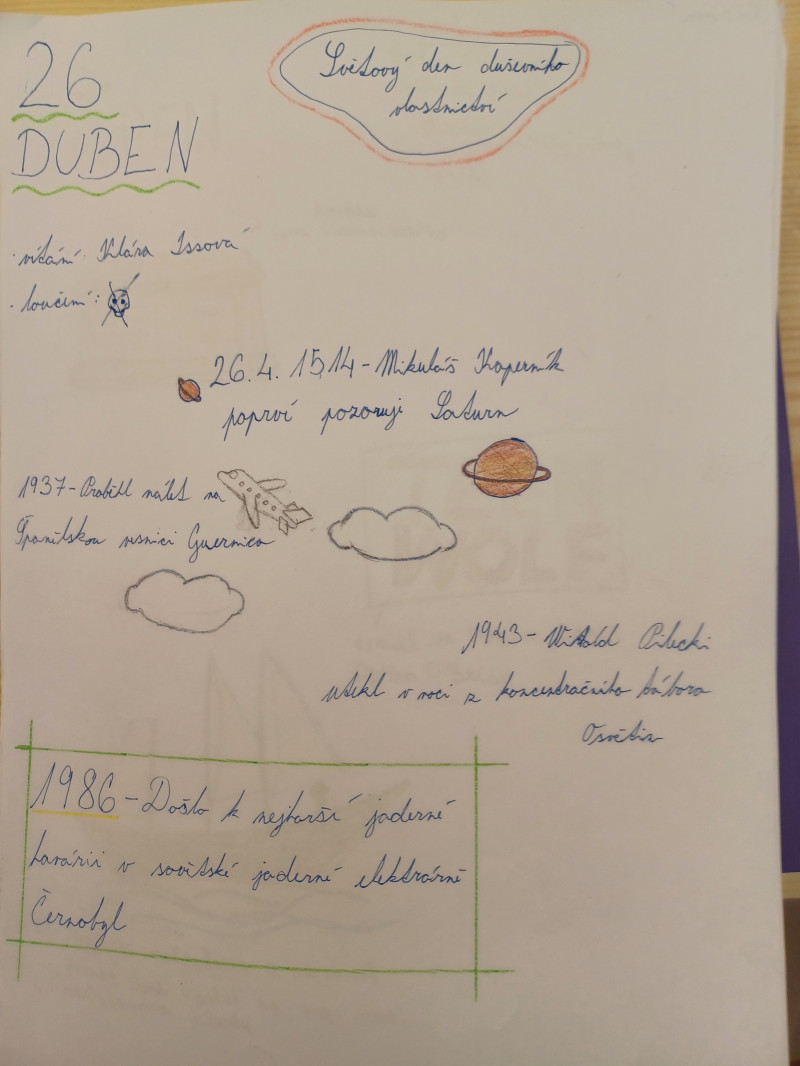 26
DUBEN
Světový den duševního
vlastnictví
· vítání: Klára Issová
· loučení:
26.4. 1514 - Mikuláš Koperník
poprvé pozoruje Saturn
1937 - Proběhl nálet na
Španělskou vesnici Guernica
1943 - Witold Pilecki
utekl v noci z koncentračního tábora
Osvětim
1986 - Došlo k nejhorší jaderné
havárii v sovětské jaderné elektrárně
Černobyl